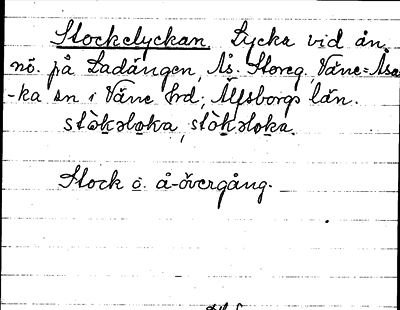 Stockelyckan. Lycka vid ån,
nö. på Ladängen, Ås. Storeg., Väne=Åsa
-ka sn i Väne hrd; Älfsborgs län.
stòkəloka, stòkəloka.
Stock o. å-övergång.